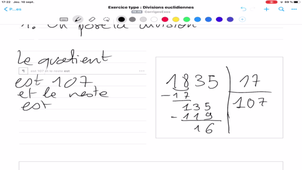 Exercice type : Divisions euclidiennes
1. On pose la division
Le quotient
est 107
et le reste
est
1835 17
- 17 107
135
- 119
16